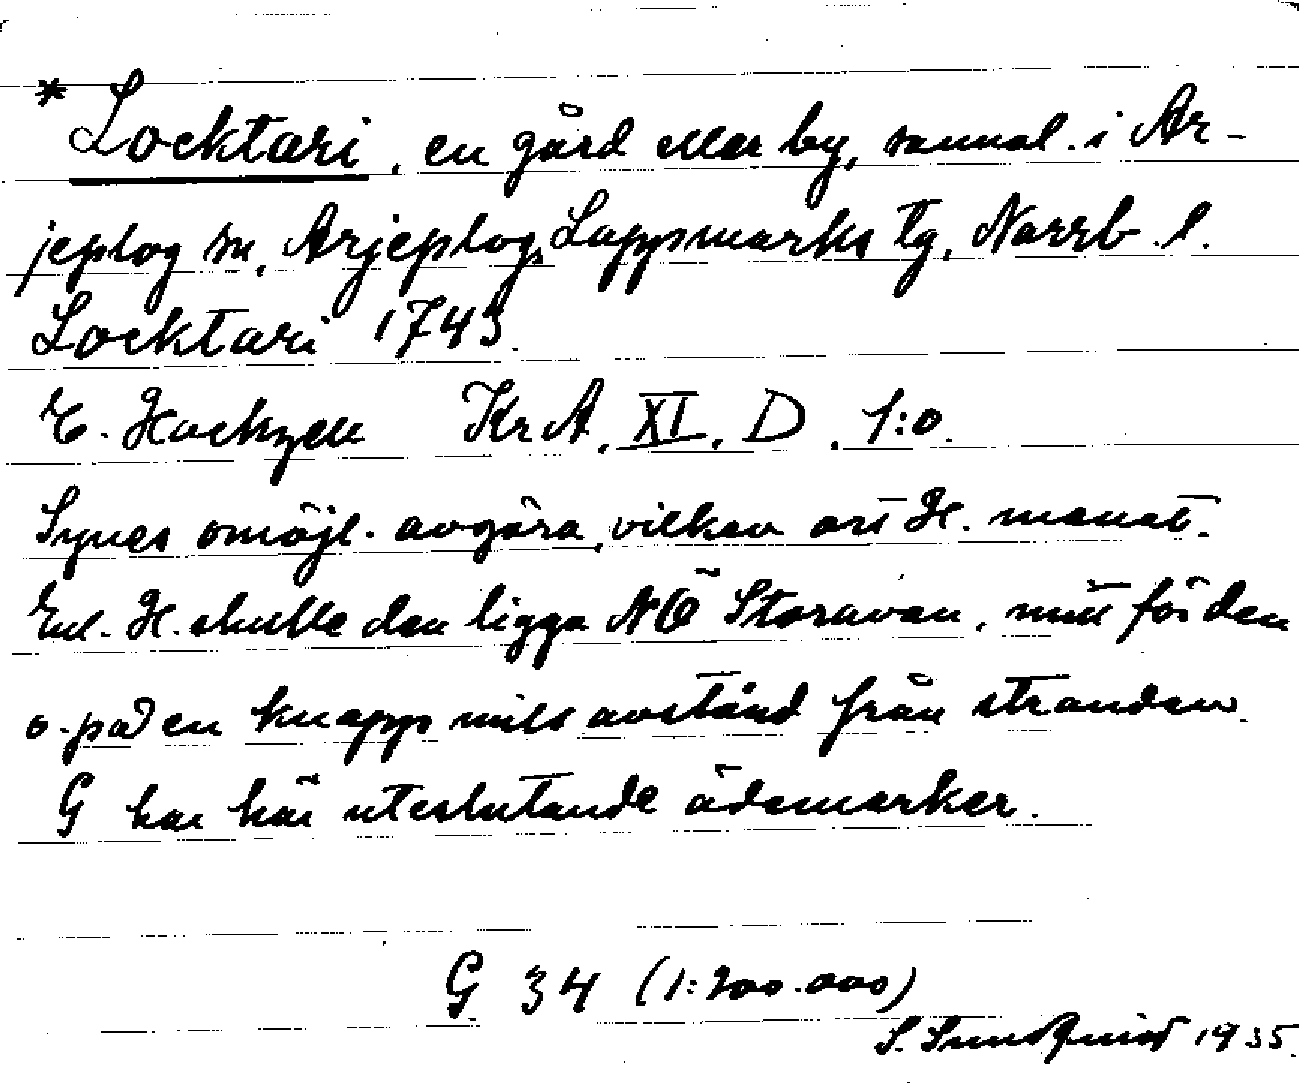 * Locktari, en gård eller by, sannol. i Ar-
jeplog sn, Arjeplogs Lappmarks tg, Norrb. l.
Locktari 1743.
E. Hackzell KrA, XI, D, 1:o.
Synes omöjl. avgöra, vilken ort H. menat.
Enl. H. skulle den ligga NÖ Storavan, mitt för den
o. på en knapp mils avstånd från stranden.
G har här uteslutande ödemarker.
G 34 (1:200.000)
S. Sundquist 1935.